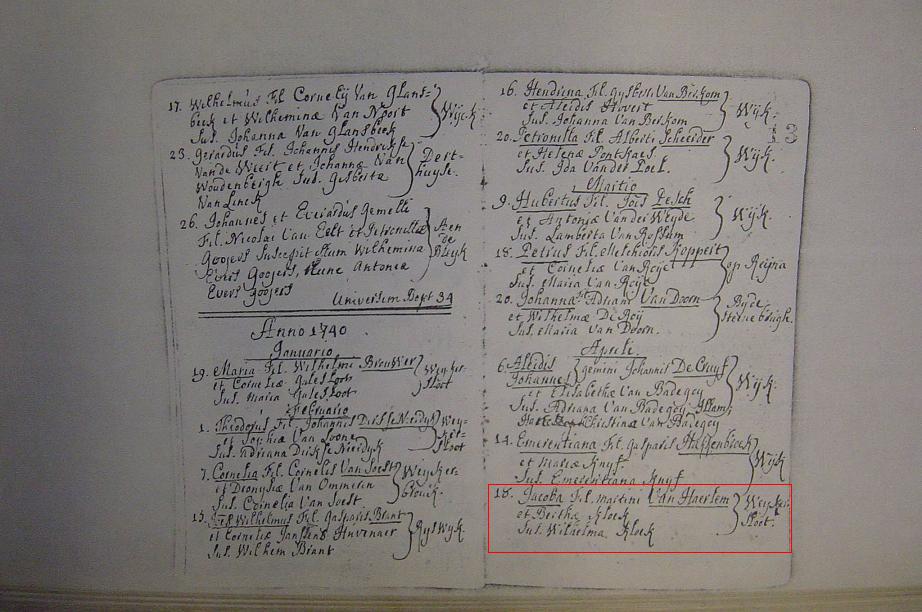 17. Wilhelmus Fil Cornelij Van Glans=
beek et Wilheminæ Van Noort
Sus. Johanna Van Glansbeek
Wijck
23. Gerardus Fil. Johannis Hendrikse
Van de Weert et Johannæ Van
Woudenbergh Sus. Gisberta
Van Linck
Dort=
huyse.
26. Johannes et Everardus Gemelli
Fil. Nicolai Van Eelt et Petronellæ
Goojers Suscepit illum Wilhelmina
Evers Goojers, hunc Antonia
Evers Goojers
Aen
de
Universim Bapt 34
Anno 1740
Januario
19. Maria Fil. Wilhelmi Brouwer
et Corneliæ Gulesloot
Sus. Maria Gulesloot
Wyker
sloot
Februario
1. Theodorus Fil. Johannis Dirkse Nierdyk
et Sophiæ Van Loon
Sus. Adriana Dirkse Nierdyk
Wey=
ker=
sloot
7. Cornelia Fil. Cornelis Van Soest
et Dionysiæ Van Ommeren
Sus. Cornelia Van Soest
Weyker
brouk.
15. Wilhelmus Fil. Gasparis Brant
et Corneliæ Janssens Huvenaer
Sus. Wilhem Brant
Ryswyk.
13
16. Hendrina Fil. Gysberti Van Berkom
et Aleidis Hovert
Sus. Johanna Van Berkom
Wijk.
20. Petronilla Fil. Alberti Scheider
et Helenæ
Sus. Ida Van der Poel.
Wijk.
Martio
9. Hubertus Fil. Jois Pesch
et Antoniæ Van der Weyde
Sus. Lamberta Van Rossum
Wijk.
18. Petrus Fil. Melchioris Koppert
et Corneliæ Van Roije
Sus. Maria Van Roije
op Reijna
20. Johanna Fil. Adriani Van Doorn
et Wilhelmæ De Roy
Sus. Maria Van Doorn.
Byde
Aprili.
6. Aleidis
Johannes
gemini Johannis De Cruyf
et Elisabethæ Van Badegoy
Sus. Adriana Van Badegoy
Christina Van Badegoy
Wijk.
14. Emerentiana Fil. Gasparis Haffenbroek
et Mariæ Kuyf.
Sus. Emerentiana Kuyf
Wijk
18. Jacoba Fil. Martini Van Haerlem
et Berthæ Kloek
Sus. Wilhelma Kloek
Weyker
sloot.